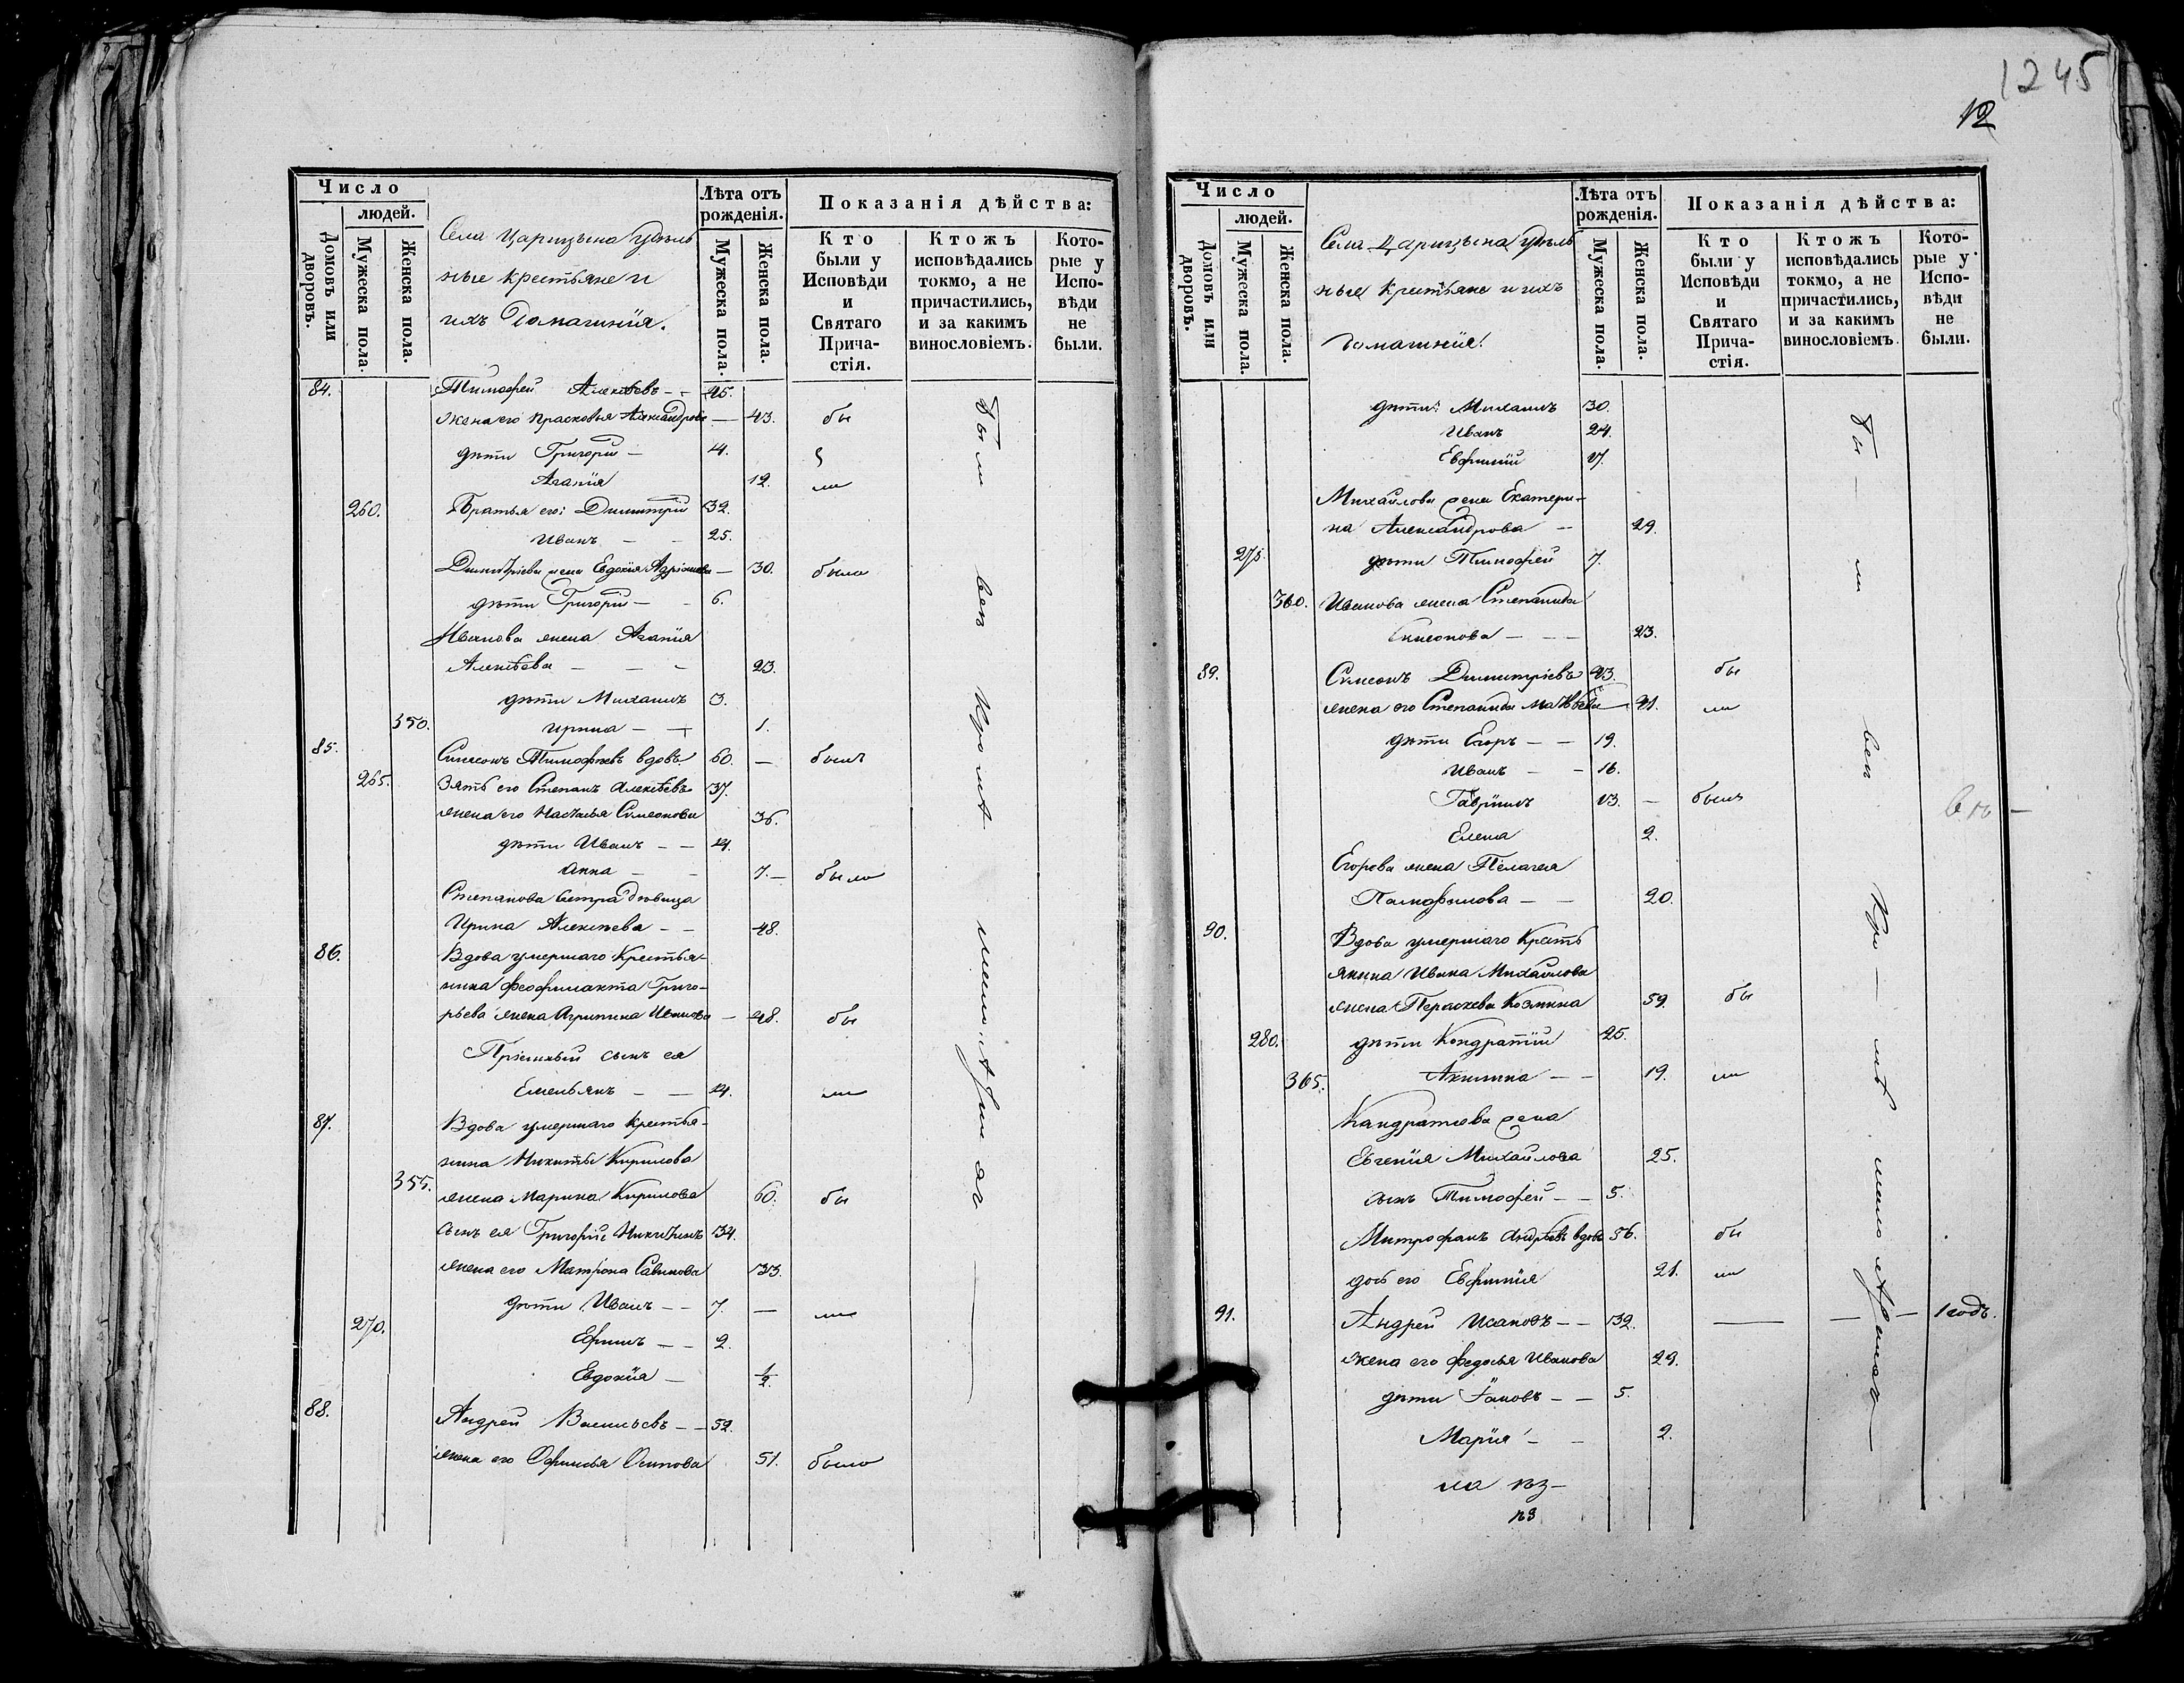 Число
людей.
Домовъ или дворовъ.
Мужеска пола.
Женска пола.
Села Царицына Удѣль
ные крестьяне и
ихъ Домашнія.
Лѣта отъ рожденія.
Мужеска пола.
Женска пола.
Показанія дѣйства:
Кто были у Исповѣди и Святаго Причастія.
Ктожъ исповѣдались токмо, а не причастились, и за какимъ винословіемъ.
Которые у Исповѣди не были.
84. Тимофей Алексѣевъ - - 45.
жена его Прасковья Александрова — 43. бы
дѣти Григорій — 14.
Агапія 12. ли
260. Братья его: Димитрій 32.
Иванъ — - 25.
Димитріева жена Евдокія — 30. была
дѣти Григорій — - 6.
Иванова жена Агапія
Алексѣева — — - 23.
дѣти Михаилъ 3.
350. Ирина — — 1.
85. Симеонъ Тимофѣевъ вдовъ 60. — былъ
265. Зять его Степанъ Алексѣевъ 37.
жена его Настасья Симеонова 36.
дѣти Иванъ - — 14.
Анна — - 7. — была
Степанова сестра дѣвица
Ирина Алексѣева - - 48.
86. Вдова умершаго Крестья-
нина Феофилакта Григо-
рьева жена Агрипина Иванова — 48. бы
Пріемный сынъ ея
Емельянъ - — 14. ли
87. Вдова умершаго крестья-
нина Никиты Кирилова
355. жена Марина Кирилова 60. бы
сынъ ея Григорій Никитинъ 34.
жена его Матрона Савинова 33.
дѣти Иванъ - - 7. — ли
270. Ефимъ — - 2.
Евдокія — 1/2.
88. Андрей Васильевъ - - 52.
жена его Офимья Осипова 51. была
Были всѣ кромѣ
1245
12
Число
людей.
Домовъ или дворовъ.
Мужеска пола.
Женска пола.
Села Царицына Удѣль
ные Крестьяне и ихъ
домашнія.
Лѣта отъ рожденія.
Мужеска пола.
Женска пола.
Показанія дѣйства:
Кто были у Исповѣди и Святаго Причастія.
Ктожъ исповѣдались токмо, а не причастились, и за какимъ винословіемъ.
Которые у Исповѣди не были.
дѣти: Михаилъ 30.
Иванъ 24.
Евфимій 17.
Михайлова жена Екатери-
на Александрова — 29.
275. дѣти Тимофей 7.
360. Иванова жена Степанида
Симеонова — - — 23.
89. Симеонъ Димитріевъ 43. бы
жена его Степанида Матвѣева 41. ли
дѣти Егоръ — — 19.
Иванъ — - 16.
Гавріилъ 13. — былъ
Елена 2.
Егорова жена Пелагея
Памфилова — — 20.
90. Вдова умершаго Кресть
янина Ивана Михайлова
жена Параскева Козмина 59. бы
280. дѣти Кондратій 25.
365. Акилина — - 19. ли
Кандратьева жена
Евгенія Михайлова 25.
сынъ Тимофей - - 5.
Митрофанъ Андреевъ вдовъ 56. бы
дочь его Евфимія 21. ли
91. Андрей Исаковъ - - 32. — — 1 годъ.
жена его Федосья Иванова 29.
дѣти Іаковъ - - 5.
Марія - - 2.
Бы — ли всѣ кро — мѣ